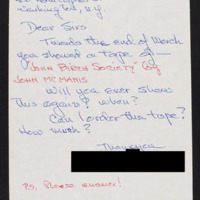 Dear Sirs
Towards the end of March
you showed a tape of
"JOHN BIRCH SOCIETY" by
JOHN MCMANIS
Will you ever show
This again? When?
Can I order this tape?
How much?
Thank you
P.S. Please answer!